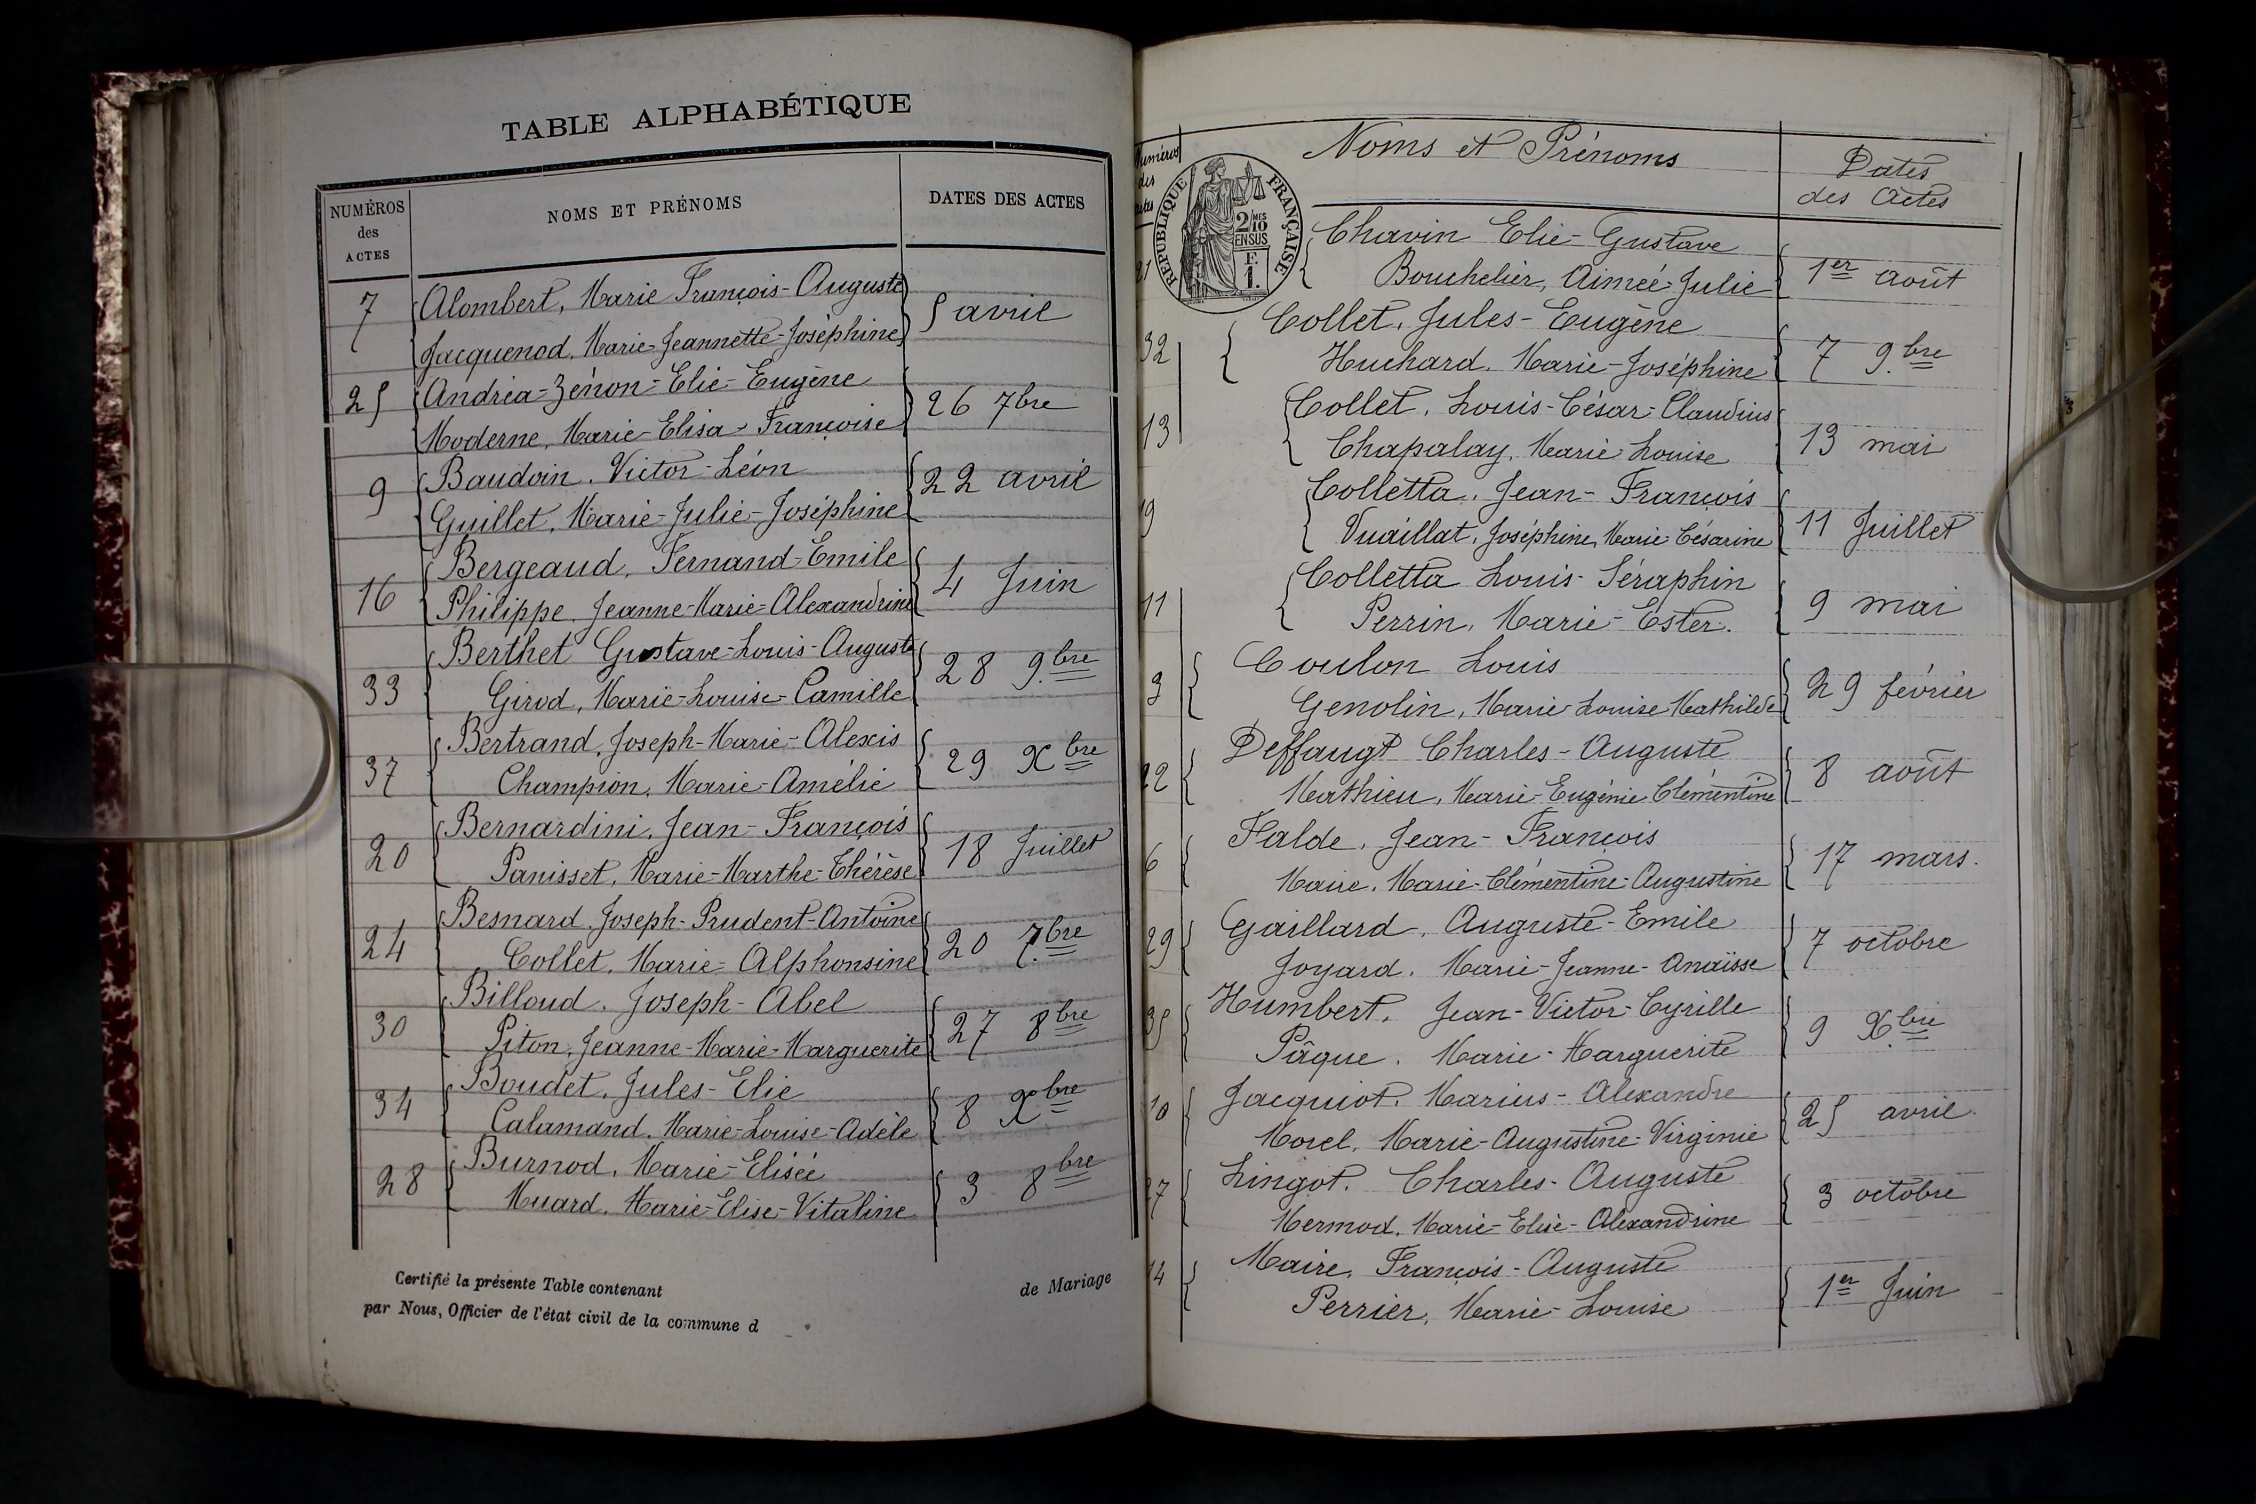 TABLE ALPHABÉTIQUE
NUMÉROS
des
ACTES
NOMS ET PRÉNOMS
DATES DES ACTES
7
Alombert, Marie François-Auguste
Jacquenod, Marie-Jeannette-Joséphine
5 avril
25
Andréa-Zénon-Elie-Eugène
Moderne, Marie-Elisa-Françoise
26 7bre
9
Baudoin, Victor-Léon
Guillet, Marie-Julie-Joséphine
22 avril
16
Bergeaud, Fernand-Emile
Philippe, Jeanne-Marie-Alexandrine
4 Juin
33
Berthet Gustave-Louis-Auguste
Girod, Marie-Louise-Camille
28 9.bre
37
Bertrand, Joseph-Marie-Alexis
Champion, Marie-Amélie
29 Xbre
20
Bernardini, Jean-François
Panisset, Marie-Marthe-Thérèse
18 Juillet
24
Besnard, Joseph-Prudent-Antoine
Collet, Marie-Alphonsine
20 7.bre
30
Billoud, Joseph-Abel
Piton, Jeanne-Marie-Marguerite
27 8bre
34
Boudet, Jules-Elie
Calamand, Marie-Louise-Adèle
8 Xbre
28
Burnod, Marie-Elisée
Muard, Marie-Elise-Vitaline
3 8bre
Certifié la présente Table contenant de Mariage
par Nous, Officier de l'état civil de la commune d
Numéros
des
actes
Noms et Prénoms
Dates
des Actes
RÉPUBLIQUE FRANÇAISE
2/10 MES
EN SUS
F.
1.
21
Chavin Elie-Gustave
Bouchelier, Aimée-Julie
1er août
32
Collet, Jules-Eugène
Huchard, Marie-Joséphine
7 9.bre
13
Collet, Louis-César-Claudius
Chapalay, Marie Louise
13 mai
19
Colletta, Jean-François
Vuaillat, Joséphine, Marie Césarine
11 Juillet
11
Colletta Louis-Séraphin
Perrin, Marie-Ester.
9 mai
3
Coulon Louis
Genolin, Marie-Louise Mathilde
29 février
22
Deffaugt Charles-Auguste
Mathieu, Marie-Eugénie Clémentine
8 août
6
Falde, Jean-François
Maire, Marie-Clémentine-Augustine
17 mars.
29
Gaillard, Auguste-Emile
Joyard, Marie-Jeanne-Anaïsse
7 octobre
35
Humbert, Jean-Victor-Cyrille
Pâque, Marie-Marguerite
9 X.bre
10
Jacquiot, Marius-Alexandre
Morel, Marie-Augustine-Virginie
25 avril
27
Lingot, Charles-Auguste
Mermod, Marie-Elise-Alexandrine
3 octobre
14
Maire, François-Auguste
Perrier, Marie-Louise
1er Juin